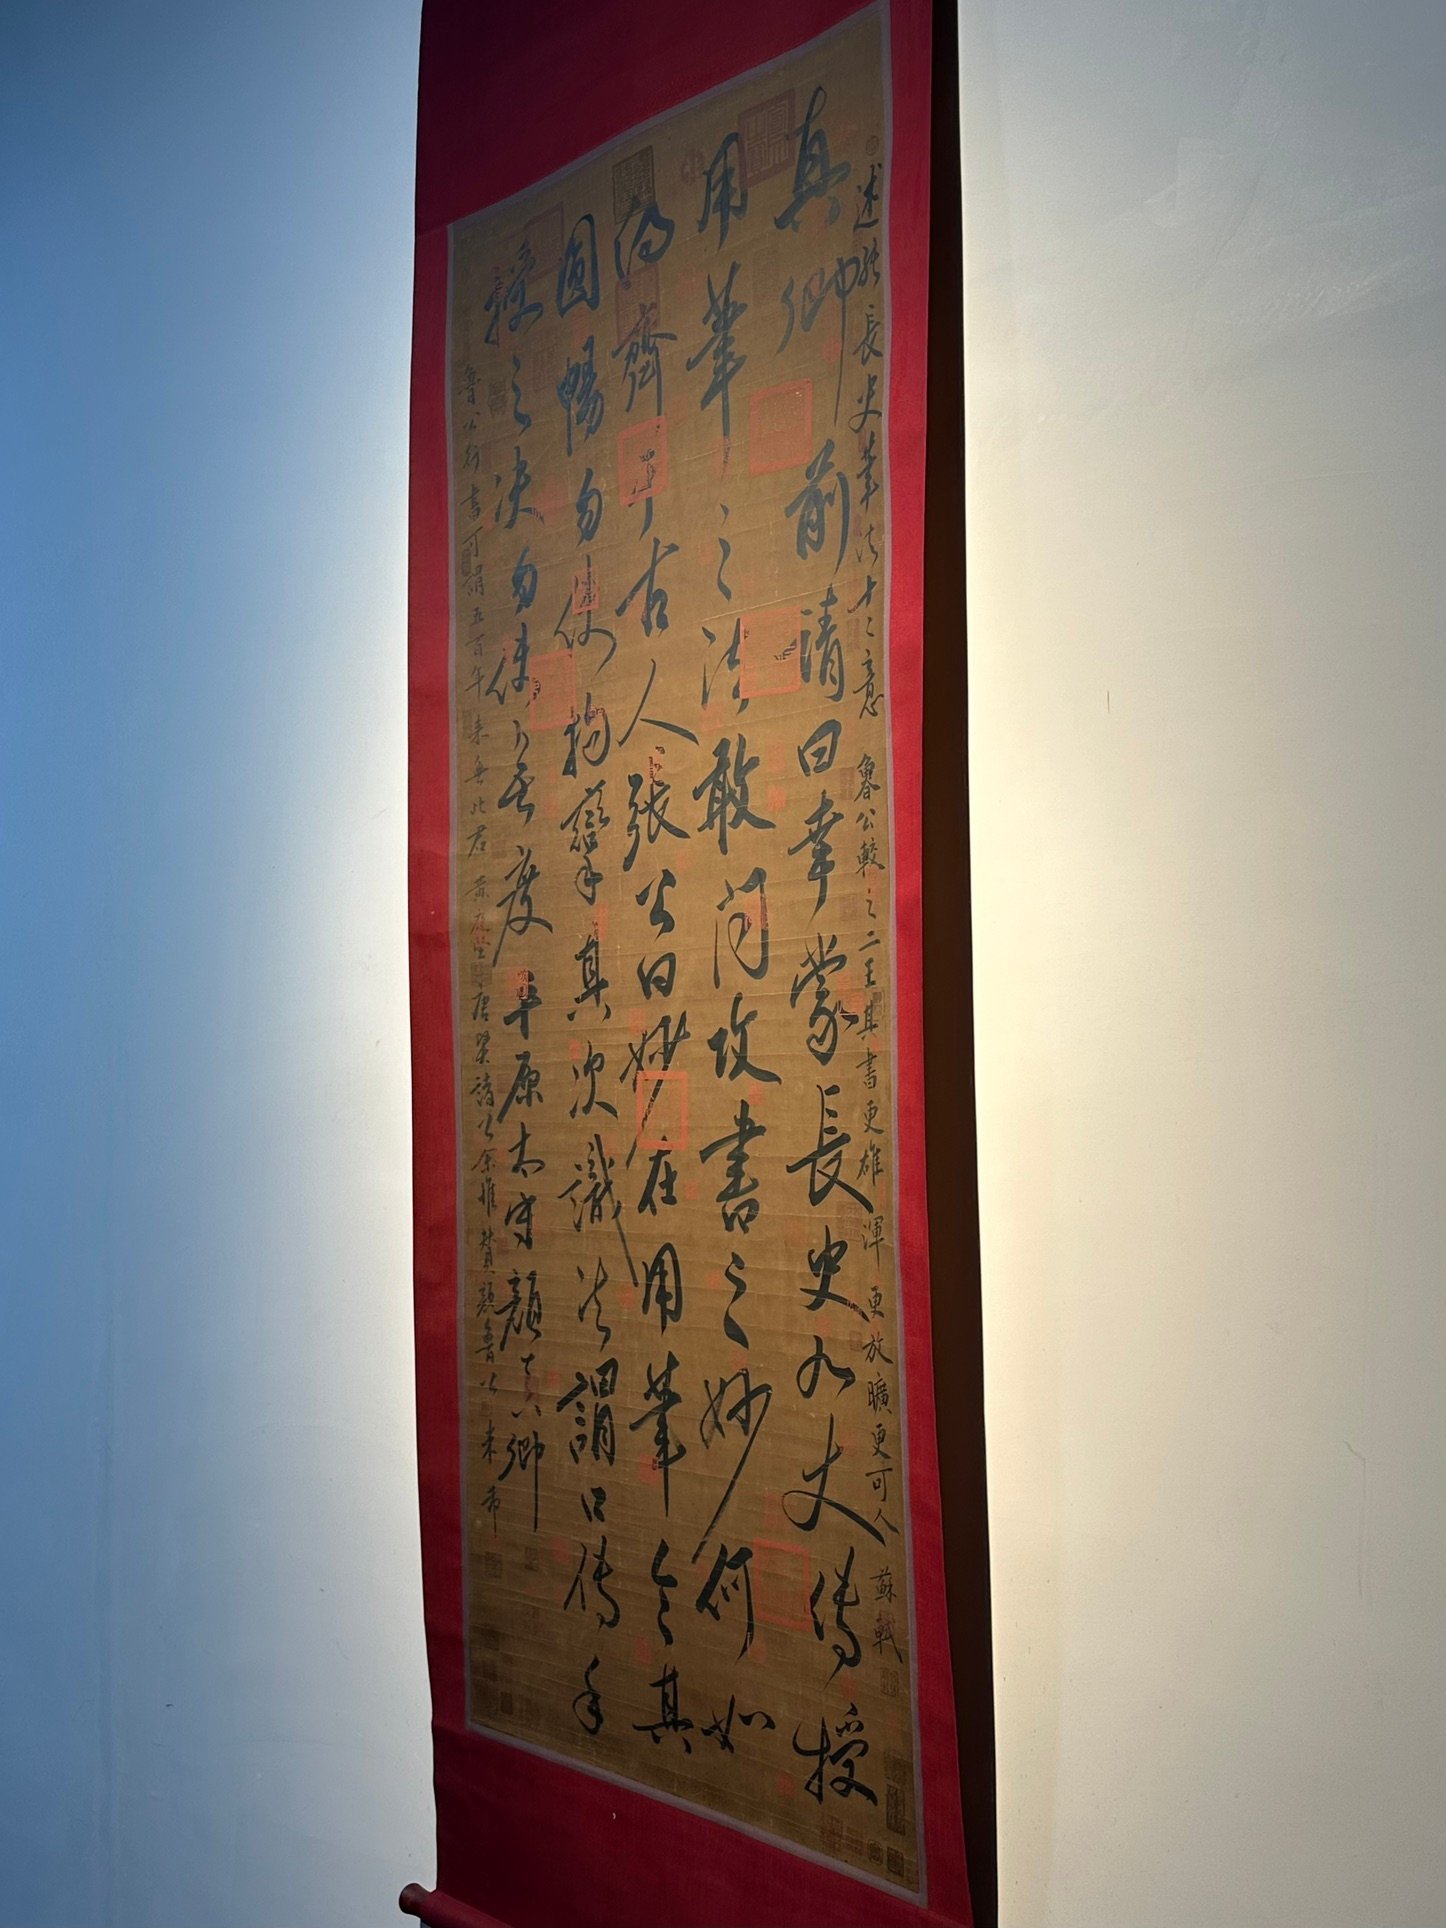 述張長史筆法十二意 魯公較之二王其書更雄渾更放曠更可人 蘇軾
真卿前請曰幸蒙長史九丈傳授
用筆之法敢問攻書之妙何如
得齊于古人張公曰妙在用筆令其
圓暢勿使拘攣其次識法謂口傳手
授之決勿使無度 平原太守顏真卿
魯公行書可謂五百年來無此君 黃庭堅 唐賢諸公余惟贊顏魯公 米芾